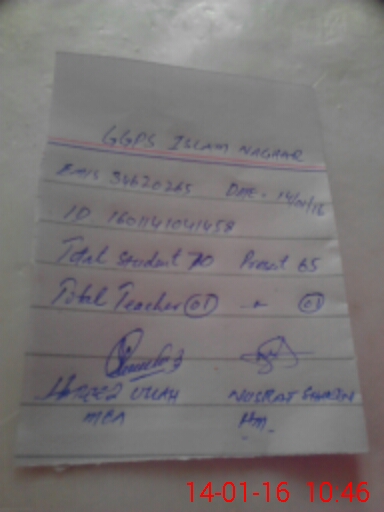 GGPS ISLAM NAGAAR
EMIS 34620265 DATE - 14/01/16
ID 1601141041458
Total Student 70 Present 65
Total Teacher 01 01
ULLAH NUSRAT
MEA Hm.
14-01-16 10:46